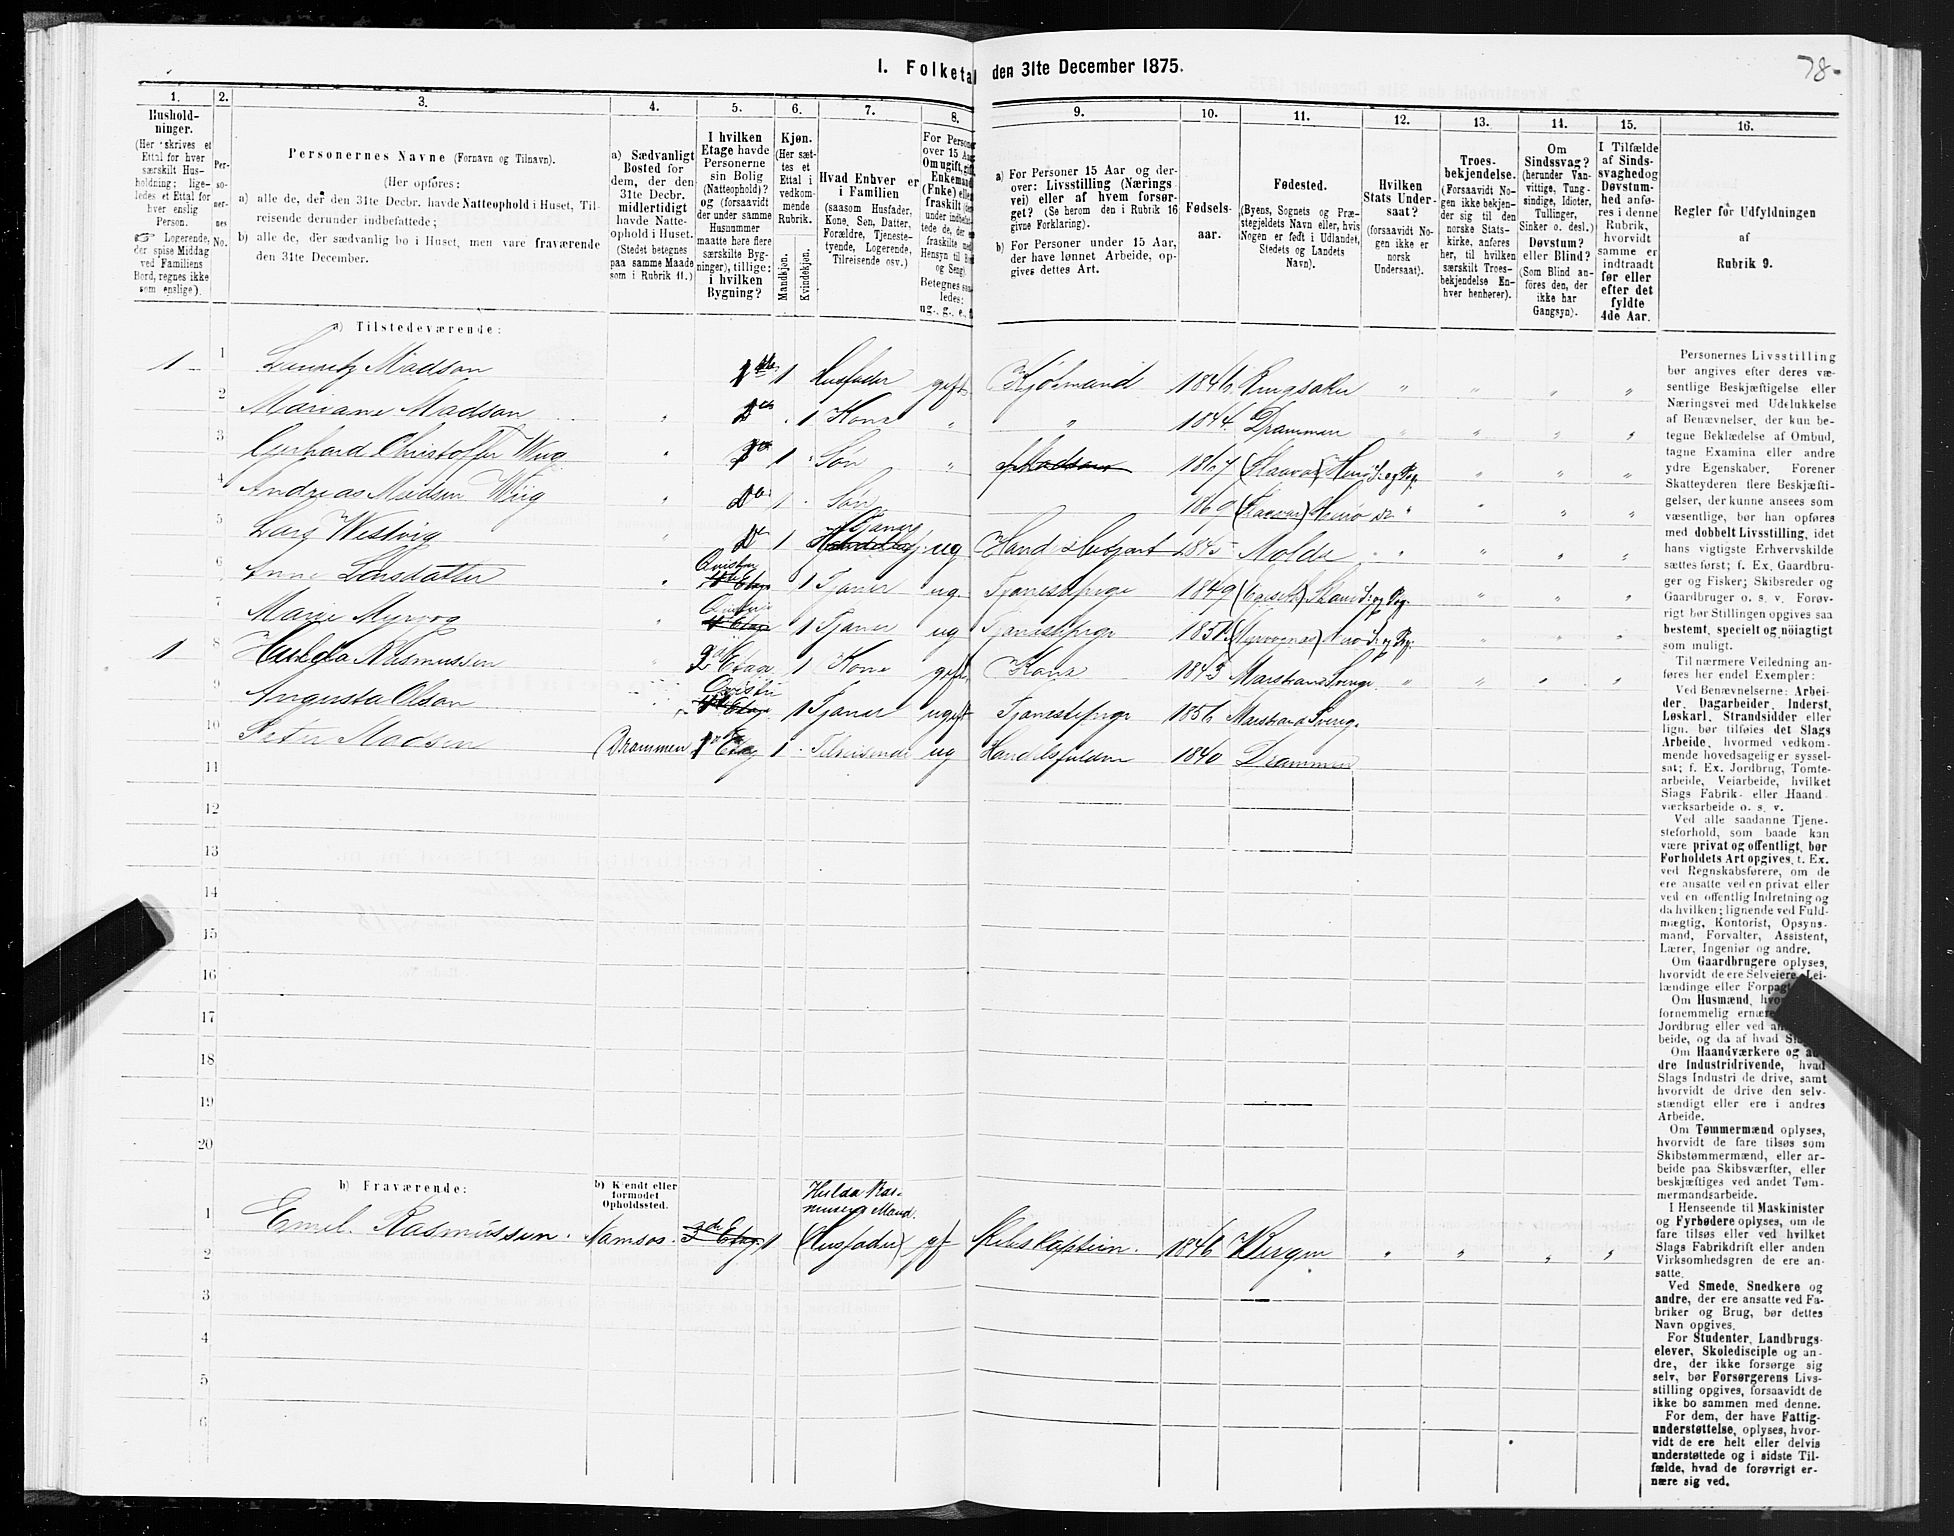 I. Folketal den 31te December 1875.
78.
1. 2. 3. 4. 5. 6. 7. 8. 9. 10. 11. 12. 13. 14. 15. 16.
Hushold-
ninger.
(Her skrives et
Ettal for hver
særskilt Hus-
holdning; lige-
ledes et Ettal for
hver enslig
Person.
☞ Logerende,
der spise Middag
ved Familiens
Bord, regnes ikke
som enslige).
Per-
so-
ner-
nes
No.
Personernes Navne (Fornavn og Tilnavn).
(Her opføres:
a) alle de, der den 31te Decbr. havde Natteophold i Huset, Til-
reisende derunder indbefattede;
b) alle de, der sædvanlig bo i Huset, men vare fraværende
den 31te December.
a) Sædvanligt
Bosted for
dem, der den
31te Decbr.
midlertidigt
havde Natte-
ophold i Huset.
(Stedet betegnes
paa samme Maade
som i Rubrik 11.)
I hvilken
Etage havde
Personerne
sin Bolig
(Natteophold)?
og (forsaavidt
der under samme
Husnummer
maatte høre flere
særskilte Byg-
ninger), tillige:
i hvilken
Bygning?
Kjøn.
(Her sæt-
tes et
Ettal i
vedkom-
mende
Rubrik.
Mandkjøn.
Kvindekjøn.
Hvad Enhver er
i Familien
(saasom Husfader,
Kone, Søn, Datter,
Forældre, Tjeneste-
tyende, Logerende,
Tilreisende osv.)
For Person
over 15 Aar
Om ugift, gift,
Enkemand
(Enke) eller
fraskilt
under indbefat-
tede de, der ere
fraskilte med
Hensyn til Bord
og Seng)
Betegnes saa-
ledes:
ug., g., e., f.
a) For Personer 15 Aar og der-
over: Livsstilling (Nærings
vei) eller af hvem forsør-
get? (Se herom den i Rubrik 16
givne Forklaring).
b) For Personer under 15 Aar,
der have lønnet Arbeide, op-
gives dettes Art.
Fødsels-
aar.
Fødested.
(Byens, Sognets og Præ-
stegjeldets Navn eller, hvis
Nogen er født i Udlandet,
Stedets og Landets
Navn).
Hvilken
Stats Under-
saat?
(forsaavidt No-
gen ikke er
norsk
Undersaat).
Troes-
bekjendelse.
(Forsaavidt No-
gen ikke bekjen-
der sig til den
norske Stats-
kirke, anføres
her, til hvilken
særskilt Troes-
bekjendelse En-
hver henhører).
Om
Sindssvag?
(herunder Van-
vittige, Tung-
sindige, Idioter,
Tullinger,
Sinker o. desl.)
Døvstum?
eller Blind?
(Som Blind an-
føres den, der
ikke har
Gangsyn).
I Tilfælde
af Sinds-
svaghed og
Døvstum-
hed anfø-
res i denne
Rubrik,
hvorvidt
samme er
indtraadt
før eller
efter det
fyldte
4de Aar.
Regler for Udfyldningen
af
Rubrik 9.
a) Tilstedeværende:
1 1 Madson 1 Husfader gift Kjøbmand 1846 Ringsaker " " " "
2 Mariane Madson " Do 1 Kone " " 1844 Drammen " " " "
3 Gerhard Christoffer Wiig " Do 1 Søn " 1867 " " "
4 Andreas Madsen Wiig " Do 1 Søn 1869 " " " "
5 Lars Westvig Do 1 Tjener ug 1845 Molde " " "
6 Anne Larsdatter " Qvisten 1 Tjener ug Tjenestepige 1849 " " "
7 Marie Myrvog " Qvisten 1 Tjener ug Tjenestepige " " "
1 8 Hulda Rasmussen 2 Etage 1 Kone gift Kone 1843 Marstrand Sverige " " " "
9 Augusta Olson Qvisten 1 Tjener ugift Tjenestepige 1856 Marstrand Sverig.
10 Peter Madsen Drammen 1 Etag 1 Tilreisende ug 1840 Drammen
11
12
13
14
15
16
17
18
19
20
b) Fraværende:
b) Kjendt eller
formodet
Opholdssted.
1 Emil Rasmussen. Namsos. 2de Etag. 1 Hulda Ras-
mussens Mand.
(Husfader) gf Skibskaptein. 1846 Bergen " " " "
2
3
4
5
6
Personernes Livsstilling
bør angives efter deres væ-
sentlige Beskjæftigelse eller
Næringsvei med Udelukkelse
af Benævnelser, der kun be-
tegne Beklædelse af Ombud,
tagne Examina eller andre
ydre Egenskaber. Forener
Skatteyderen flere Beskjæfti-
gelser, der kunne ansees som
væsentlige, bør han opføres
med dobbelt Livsstilling, idet
hans vigtigste Erhvervskilde
sættes først; f. Ex. Gaardbru-
ger og Fisker; Skibsreder og
Gaardbruger o. s. v. Forøv-
rigt bør Stillingen opgives saa
bestemt, specielt og nøiagtigt
som muligt.
Til nærmere Veiledning an-
føres her endel Exempler:
Ved Benævnelserne: Arbei-
der, Dagarbeider, Inderst,
Løskarl, Strandsidder eller
lign. bør tilføies det Slags
Arbeide, hvormed vedkom-
mende hovedsagelig er syssel-
sat; f. Ex. Jordbrug, Tomte-
arbeide, Veiarbeide, hvilket
Slags Fabrik- eller Haand-
værksarbeide o. s. v.
Ved alle saadanne Tjene-
steforhold, som baade kan
være privat og offentligt, bør
Forholdets Art opgives, t. Ex.
ved Regnskabsførere, om de
ere ansatte ved en privat eller
ved en offentlig Indretning og
da hvilken; lignende ved Fuld-
mægtig, Kontorist, Opsyns-
mand, Forvalter, Assistent,
Lærer, Ingeniør og andre.
Om Gaardbrugere oplyses,
hvorvidt de ere Selveiere, Lei-
lændinge eller
Om Husmænd,
fornemmelig
Jordbrug eller ved
beide, og da af hvad
Om Haandværkere og an-
dre Industridrivende, hvad
Slags Industri de drive, samt
hvorvidt de drive den selv-
stændigt eller ere i andres
Arbeide.
Om Tømmermænd oplyses,
hvorvidt de fare tilsøs som
Skibstømmermænd, eller ar-
beide paa Skibsværfter, eller
beskjæftiges ved andet Tøm-
mermandsarbeide.
I Henseende til Maskinister
og Fyrbødere oplyses, om de
fare tilsøs eller ved hvilket
Slags Fabrikdrift eller anden
Virksomhedsgren de ere an-
satte.
Ved Smede, Snedkere og
andre, der ere ansatte ved Fa-
briker og Brug, bør dettes
Navn opgives.
For Studenter, Landbrugs-
elever, Skoledisciple og an-
dre, der ikke forsørge sig
selv, bør Forsørgerens Livs-
stilling opgives, forsaavidt de
ikke bo sammen med denne.
For dem, der have Fattig-
understøttelse, oplyses, hvor-
vidt de ere helt eller delvis
understøttede og i sidste Til-
fælde, hvad de forøvrigt er-
nære sig ved.